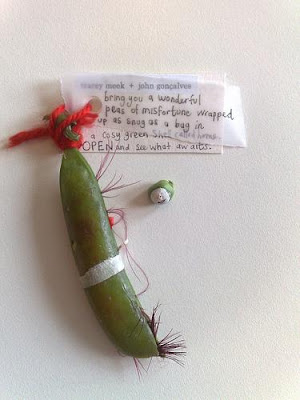 tracey meek + john gonçalves
bring you a wonderful
peas of misfortune wrapped
up as snug as a bag in
a cosy green shell called
OPEN and see what awaits.